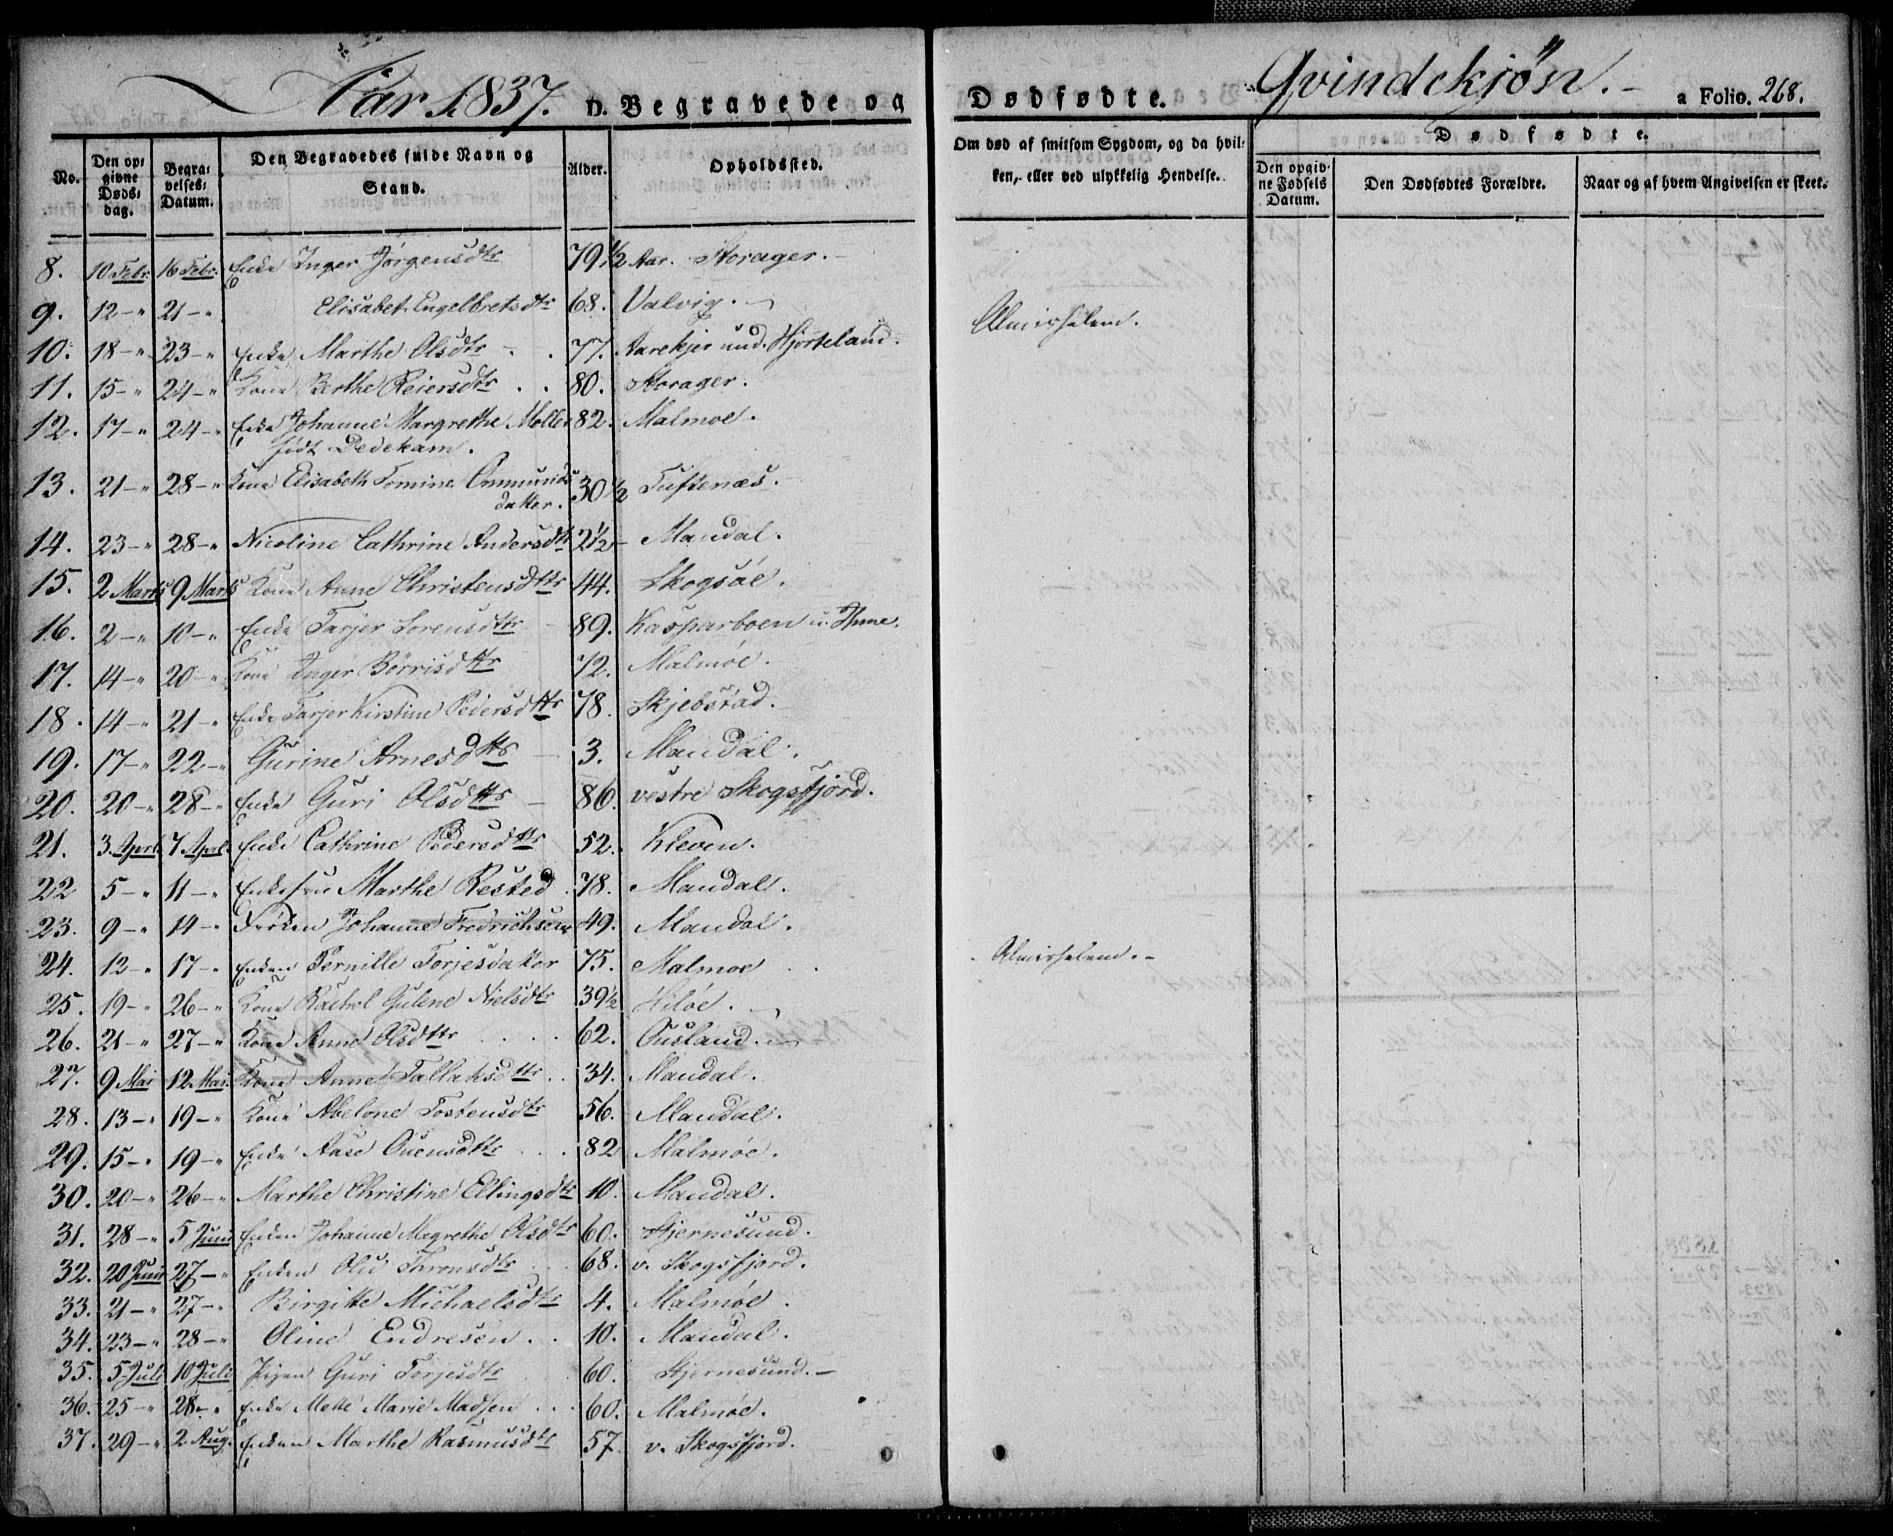 Aar 1837. D. Begravede og Dødfødte. Qvindekjøn. a Folio. 268.
No. Den opgivne Dødsdag. Begravelses Datum. Den Begravedes fulde Navn og Stand. Alder. Opholdssted. Om død af smitsom Sygdom, og da hvilken, eller ved ulykkelig Hendelse. Dødfødte.
Den opgivne Fødsels Datum. Den Dødfødtes Forældre. Naar og af hvem Angivelsen er skeet.
8. 10 Febr. 16 Febr. Enke Inger Jørgensdtr 79 1/2 Aar. Storager.
9. 12 - " 21 - " Elisabet Engelbretsdtr 68. Valvig. Almishalem.
10. 18 - " 23 - " Enke Marthe Olsdtr 77. Aarekjer und. Hjorteland.
11. 15 - " 24 - " Kone Berthe Reiersdtr 80. Storager.
12. 17 - " 24 - " Enke Johanne Margrethe Møller 82. Malmøe.
født Dedekam.
13. 21 - " 28 - " Kone Elisabeth Tomine Ommunds 30 1/2 Tuftenæs.
datter.
14. 23 - " 28 - " Nicoline Cathrine Andersdtr 2 1/2 - Mandal.
15. 2 Marts 9 Marts Kone Anne Christensdtr 44. Skogsøe.
16. 2 - " 10 - " Enke Tarjer Sorensdtr 89. Kasparboen u. Hime.
17. 14 - " 20 - " Kone Inger Børrisdtr 72. Malmøe.
18. 14 - " 21 - " Enke Tarjer Kirstine Pedersdtr 78. Skjebstad.
19. 17 - " 22 - " Gurine Arnesdtr 3. Mandal.
20. 20 - " 28 - " Enke Guri Olsdtr 86. vestre Skogsfjord.
21. 3. April 7 April. Enke Cathrine Pedersdtr 52. Kleven.
22 5 - " 11 - " Enkefru Marthe Rested 78. Mandal.
23. 9 - " 14 - " Frøken Johanne Fredrichsen 49. Mandal.
24. 12 - " 17 - " Enken Pernille Torjesdatter 75. Malmøe Almishalem.
25. 19 - " 26 - " Kone Rachel Gulene Nielsdtr 39 1/2 Hiløe.
26. 21 - " 27 - " Kone Anne Olsdtr 62. Ousland.
27. 9 Mai 12 Mai. Kone Anne Tallaksdtr 34. Mandal.
28. 13 - " 19 - " Kone Abelone Tostensdtr 56. Mandal.
29. 15 - " 19 - " Enke Aase Ouensdtr 82 Malmøe.
30. 20 - " 26 - " Marthe Christine Ellingsdtr 10. Mandal.
31. 28 - " 5 Juni Enken Johanne Magrethe Olsdtr 60. Hjernesund.
32. 20 Juni 27 - " Enken Olid Taronsdtr 68. v. Skogsfjord.
33. 21 - " 27 - " Birgitte Michaelsdtr 4. Malmøe.
34. 23 - " 28 - " Oline Endresen 10. Mandal.
35. 5 Juli 10 Juli Pigen Guri Torjesdtr 60. Hjernesund.
36. 25 - " 28 - " Enke Mette Marie Madsen 60. Malmøe.
37. 29 - " 2 Aug. Enken Marthe Rasmusdtr 57. v. Skogsfjord.